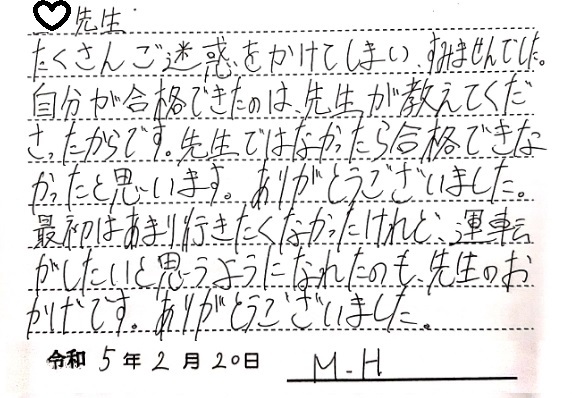 先生
たくさんご迷惑をかけてしまい、すみませんでした。
自分が合格できたのは、先生が教えてくだ
さったからです。先生ではなかったら合格できな
かったと思います。ありがとうございました。
最初はあまり行きたくなかったけれど、運転
がしたいと思うようになれたのも、先生のお
かげです。ありがとうございました。
令和 5 年 2 月 20 日 M-H